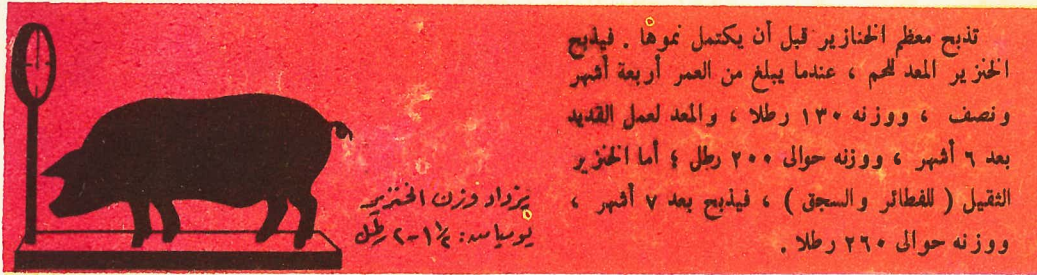 تذبح معظم الخنازير قبل أن يكتمل نموها . فيذبح
الخنزير المعد للحم ، عندما يبلغ من العمر أربعة أشهر
ونصف ، ووزنه ١٣٠ رطلا ، والمعد لعمل القديد
بعد ٦ أشهر ، ووزنه حوالى ٢٠٠ رطل ؛ أما الخنزير
الثقيل ( للفطائر والسجق ) ، فيذبح بعد ٧ أشهر ،
ووزنه حوالى ٢٦٠ رطلا .
يزداد وزن الخنزير
يوميا من : ١/٢ ١ – ٢ رطل